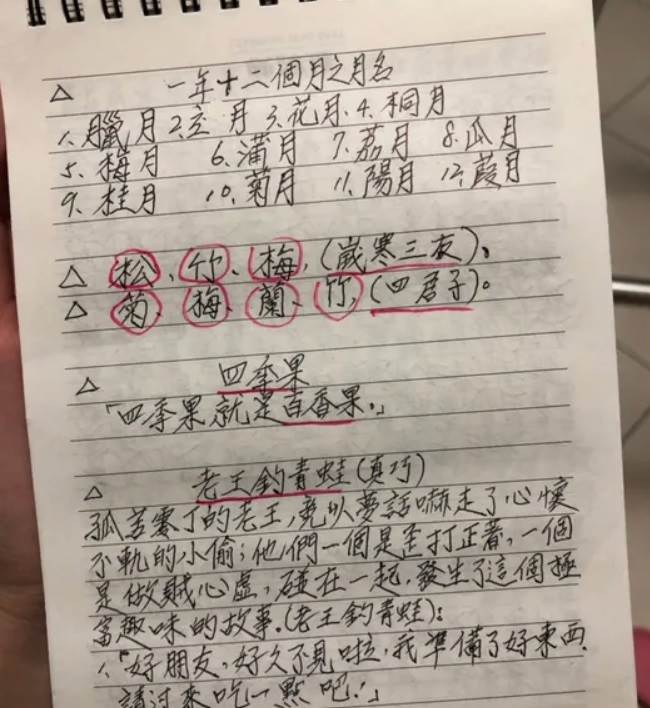 △ 一年十二個月之月名
1.臘月 2.立月 3.花月 4.桐月
5.梅月 6.蒲月 7.荔月 8.瓜月
9.桂月 10.菊月 11.陽月 12.葭月
△ 松、竹、梅,(歲寒三友)、
△ 菊、梅、蘭、竹,(四君子)。
△ 四季果
「四季果就是百香果。」
△ 老王釣青蛙(真巧)
孤苦零丁的老王,竟以夢話嚇走了心懷
不軌的小偷;他們一個是歪打正著,一個
是做賊心虛,碰在一起,發生了這個極
富趣味的故事.(老王釣青蛙):
1.「好朋友,好久不見啦,我準備了好東西.
請过來吃一點吧!」